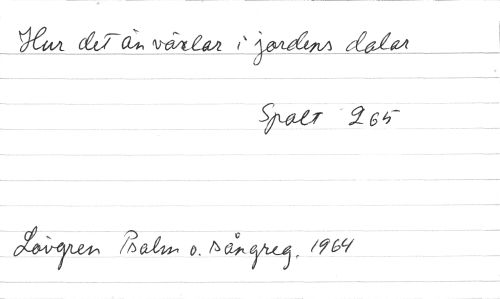 Hur det än växlar i jordens dalar
Spalt 265
Lövgren Psalm o. sångreg. 1964